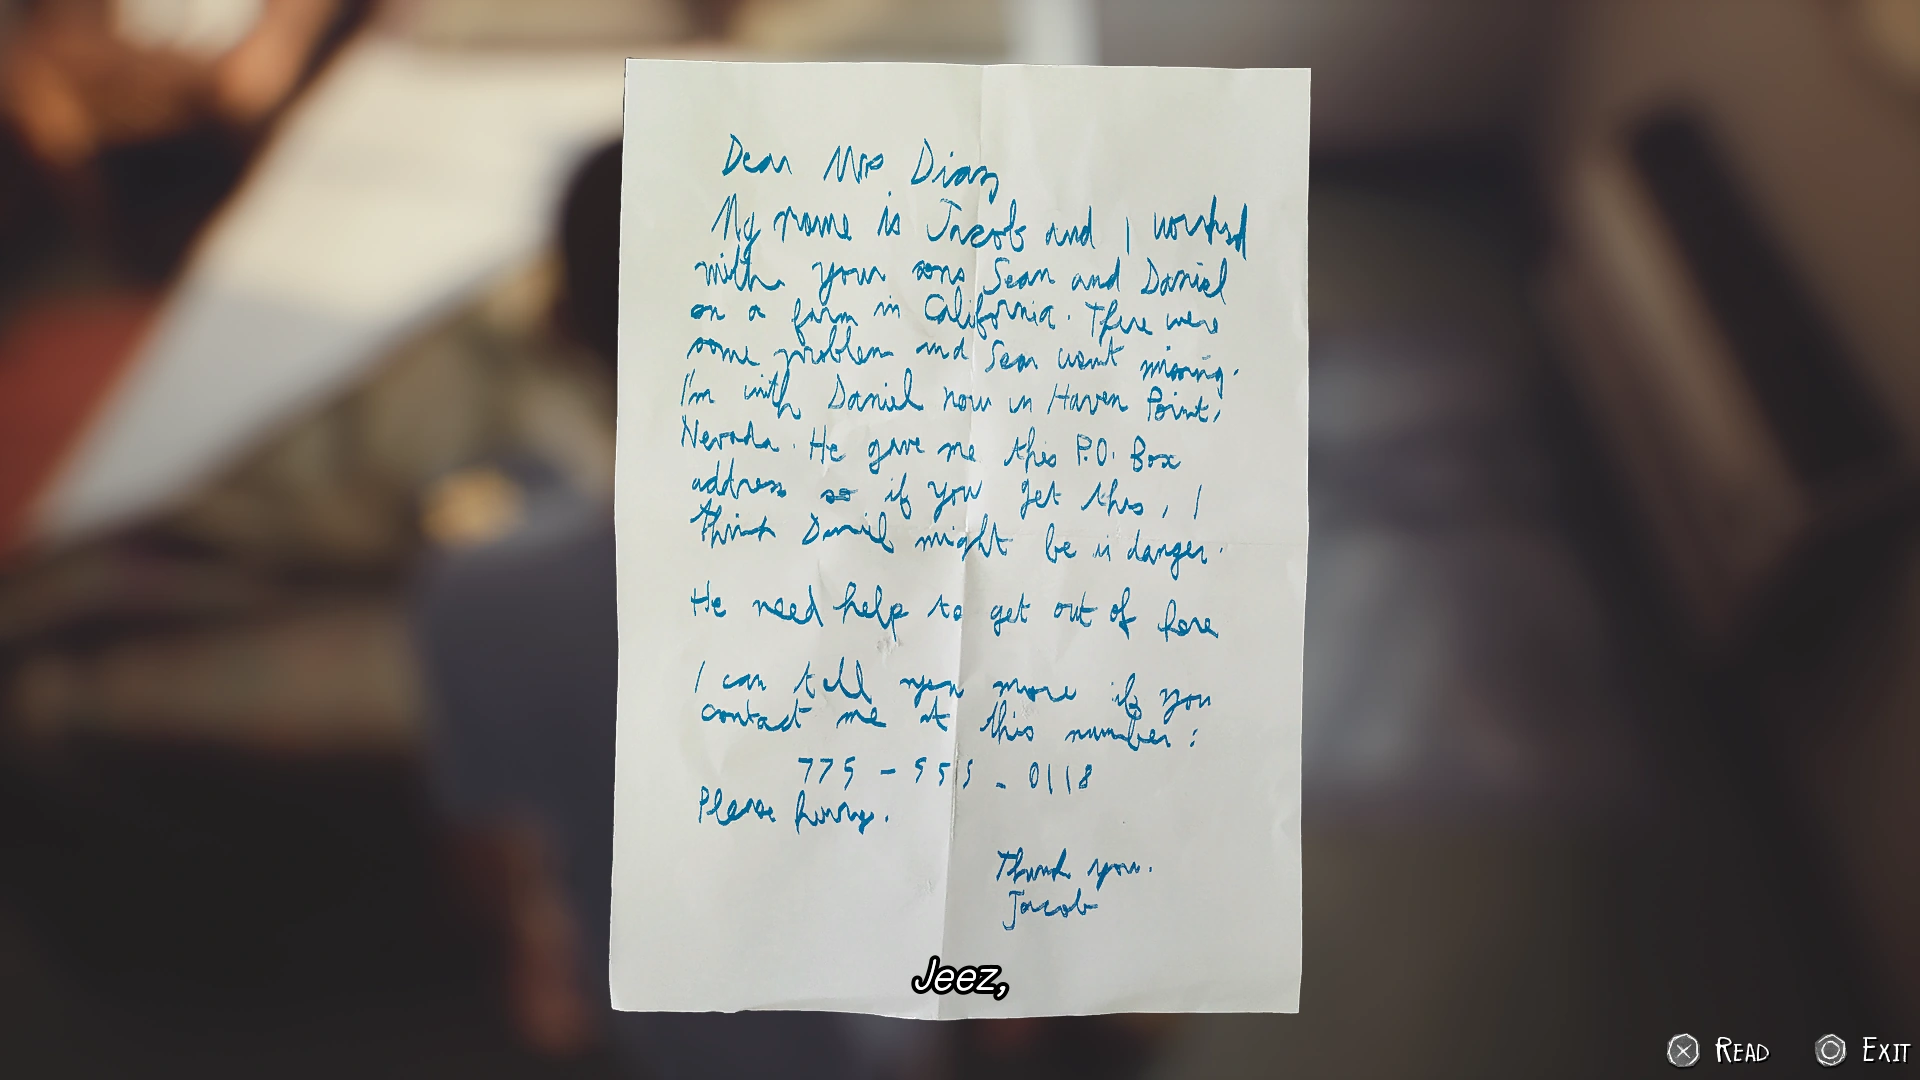 Dear Mrs Diaz
My name is Jacob and I worked
with your sons Sean and Daniel
on a farm in California. There were
some problem and Sean went missing.
I'm with Daniel now in Haven Point,
Nevada. He gave me this P.O. Box
address so if you get this, I
think Daniel might be in danger.
He need help to get out of here
I can tell you more if you
contact me at this number:
775-555-0118
Please hurry.
Thank you.
Jacob
Jeez,
READ
EXIT